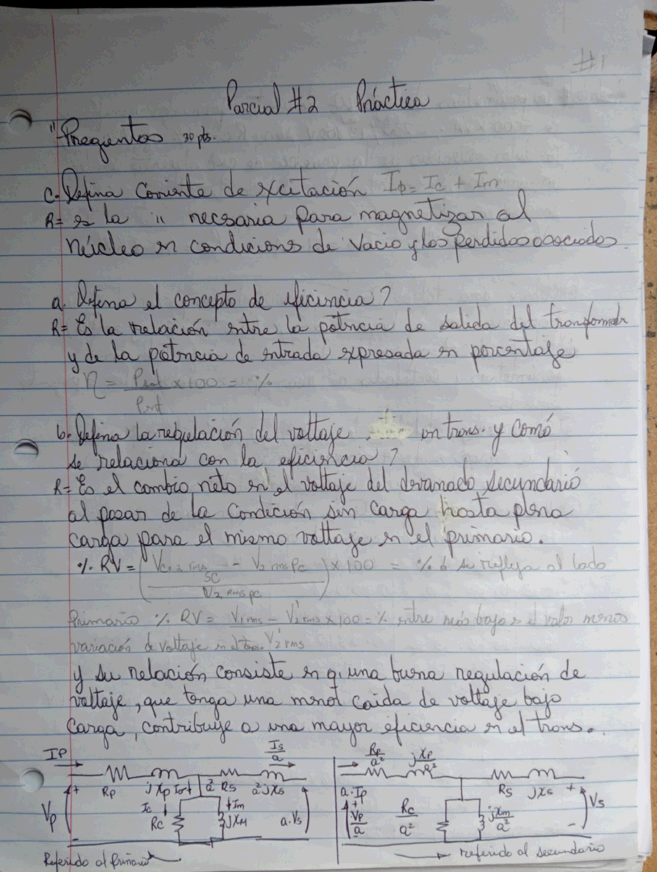 #1
Parcial #2 Práctica
"Preguntas 30 pts.
c. Defina Corriente de excitación Ip = Ic + Im
R= es la " necesaria para magnetizar al
núcleo en condiciones de vacio y las perdidas asociadas
a. Defina el concepto de eficiencia?
R= Es la relación entre la potencia de salida del transformador
y de la potencia de entrada expresada en porcentaje
η = Psal x 100 = %
Pent
b. Defina la regulación del voltaje en trans. y comó
se relaciona con la eficiencia?
R= Es el cambio neto en el voltaje del devanado secundario
al pasar de la condición sin carga hasta plena
carga para el mismo voltaje en el primario.
% RV = ( - V2 rms pc ) x 100 = % & se refleja al lado
SC
V2 rms pc
Primario % RV = V1rms - V'2rms x 100 = % entre más bajo el valor menos
variación de voltaje en el tra. V'2 rms
y su relación consiste en q. una buena regulación de
voltaje, que tenga una menor caida de voltaje bajo
Carga, contribuye a una mayor eficiencia en el trans.
IP Is/a Rp/a² jXp/a²
Rp jXp a² Rs a² jXs Rs jXs
Vp Ic Rc Im jXM a·Vs a·Ip Vp/a Rc/a² jXm/a² Vs
Referido al primario referido al secundario